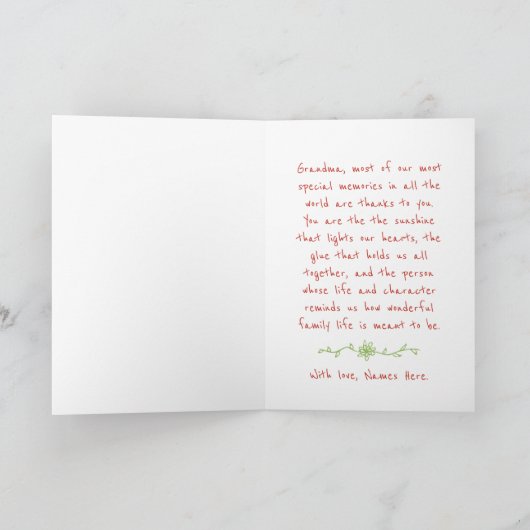 Grandma, most of our most
special memories in all the
world are thanks to you.
You are the the sunshine
that lights our hearts, the
glue that holds us all
together, and the person
whose life and character
reminds us how wonderful
family life is meant to be.
With love, Names Here.